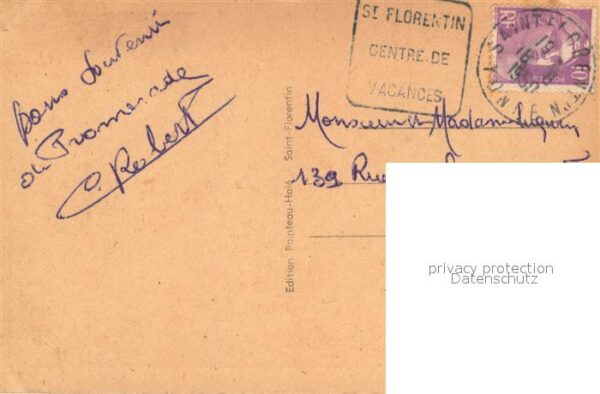 Bons Souvenir
de Promenade
C Robert
St FLORENTIN
CENTRE DE
VACANCES
RF
SAINT-FLORENTIN
YONNE
Edition Pointeau-Holé Saint-Florentin
Monsieur et Madame
139 Rue
privacy protection
Datenschutz